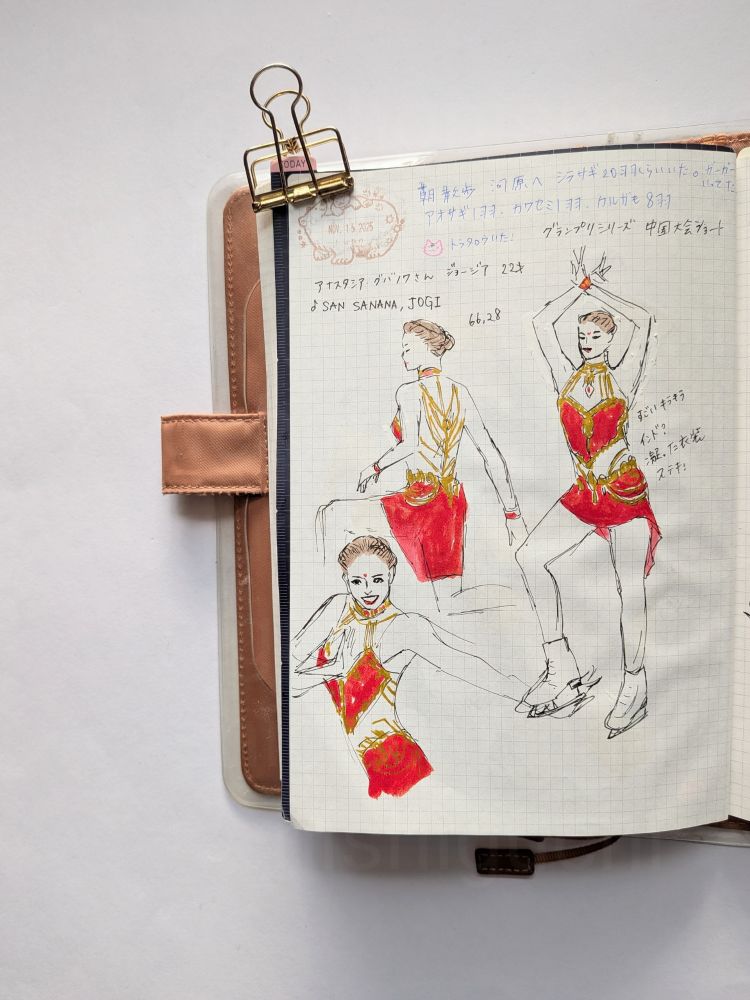 TODAY
NOV. 15. 2025
朝 散歩 河原へ シラサギ 20羽くらいいた。ガーガー
いってた
アオサギ1羽、カワセミ1羽、カルガモ 8羽
トラタロウいた!
グランプリシリーズ 中国大会ショート
アナスタシア・グバノワさん ジョージア 22才
♪SAN SANANA, JOGI
66,28
すごいキラキラ
インド?
凝った衣装
ステキ!